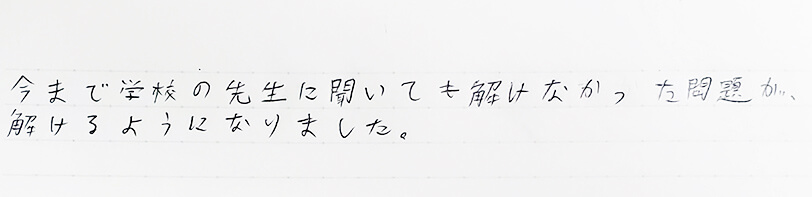 今まで学校の先生に聞いても解けなかった問題が、
解けるようになりました。